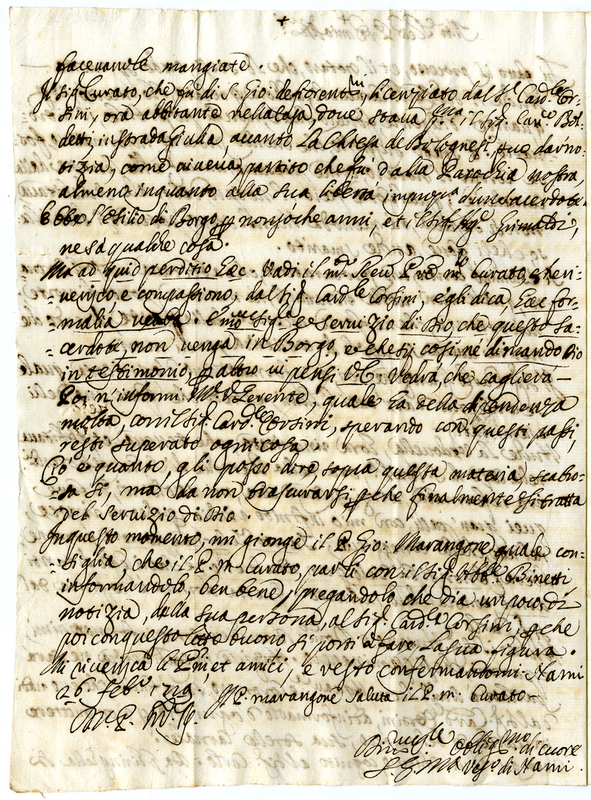 facevanole mangiate.
Il sigr Curato, che fù di S. Gio: de fiorentni, licenziato dal Sr. Cardle Cor-
sini, ora abbitante nella Casa, dove stava il sigr Cavro Bol-
detti in strada Giulia, accanto La Chiesa de Bolognesi, può dar no-
tizia, come viveva partito che fù dalla Parochia nostra,
almeno inquanto alla sua libertà impropa d'un sacerdote
ebbe l'esilio di Borgo p non so che anni, et il sigr Grimaldi,
ne sà qualche cosa.
Ma ad quid perditio Haec. Vadi il mto Revdo Pre mio Curato, che ri-
-verisco e compassiono, dal sigr Cardle Corsini, e gli dica, Haec for-
malia verba Emo sigre è servizio di Dio che questo sa-
-cerdote, non venga in Borgo, e che sij così, ne dimando Dio
in testimonio, p altro vi pensi V. E. Vedrà, che caglierà
Poi n'informi Mr Vicegerente, quale hà della dipendenza
molta, con il sigr Cardle Corsini, sperando con questi passi,
resti superato ogni cosa.
Ciò è quanto, gli posso dire, sopra questa materia scabro-
-sa sì, mà da non trascurarsi, p che finalmente si tratta
del servizio di Dio.
In questo momento, mi gionge il P. Gio: Marangone quale con-
siglia, che il P. m. Curato, parli con il sigr Abbte Binetti
informandolo, ben bene, pregandolo, che dia un poco di
notizia, della sua persona, al sigr Cardle Corsini, p che
poi con questo lotto buono si porti à fare, la sua figura.
Mi riverisca li Pri, et amici, e resto confermandomi Narni
26 febro 1719. Il P. marangone saluta il P. m. Curato
Di V. P. M. R.
obligmo di cuore
Vesco di Narni.